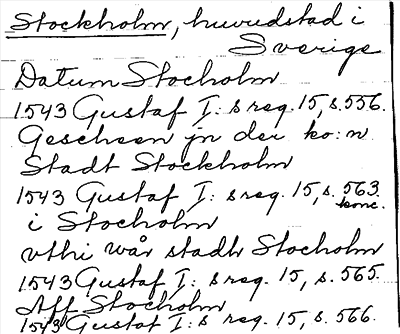 Stockholm, huvudstad i
Sverige
Datum Stocholm
1543 Gustaf I: s reg. 15, s. 556.
Gescheen jn der ko: n.
Stadt Stockholm
1543 Gustaf I: s reg. 15, s. 563.
konc.
i Stocholm
vthi wår stadh Stocholm
1543 Gustaf I: s reg. 15, s. 565.
Aff Stocholm
1543 Gustaf I: s reg. 15, s. 566.